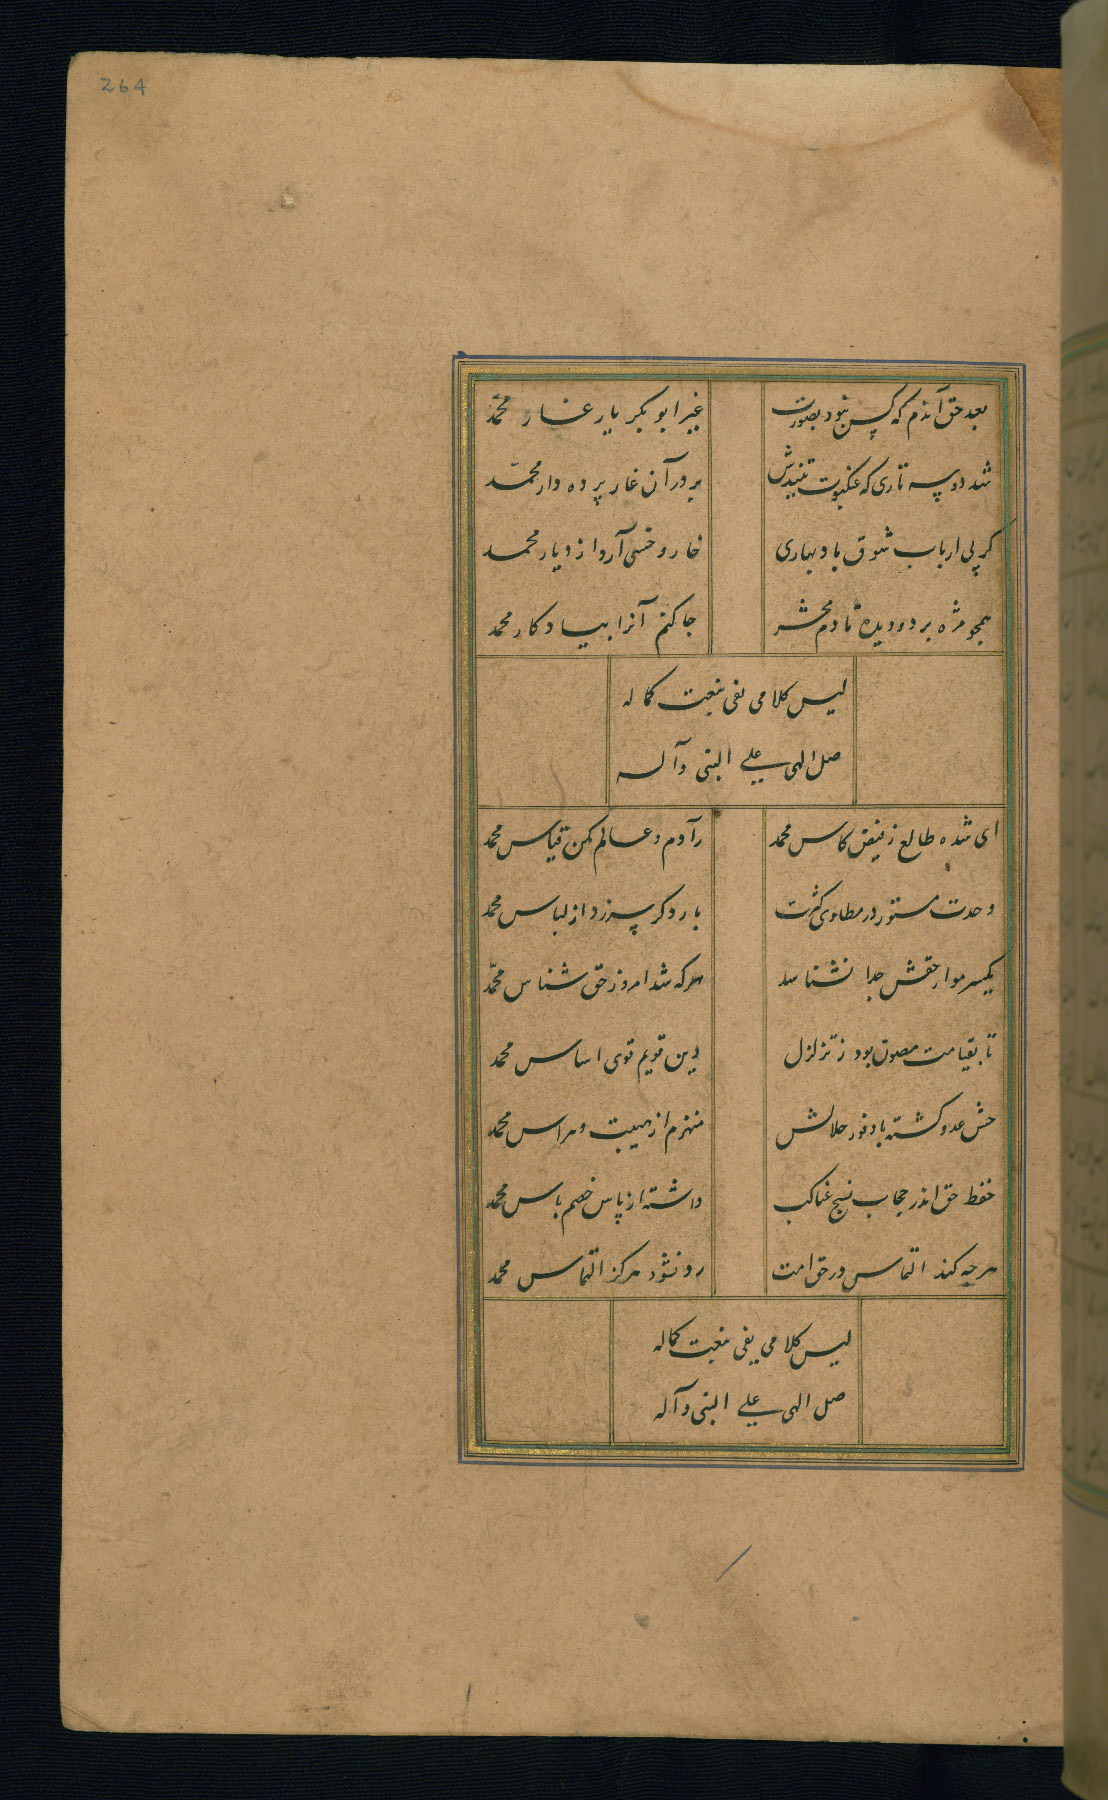 264
بعد حق آندم که کس نبود بصورت غیر ابو بکر یار غار محمّد
شد دو سه تاری که عنکبوت تنیدش بر در آن غار پرده دار محمّد
کر پی ارباب شوق باد بهاری خار و خسی آرد از دیار محمد
همچو مژه بر دو دیده تا دم محشر جا کنم آنرا بیادکار محمد
لیس کلامی یفی بنعت کماله
صل الهی علی النبی وآله
ای شده طالع ز فیض کاس محمد آدم و عالم مکن قیاس محمد
وحدت مستور در مطاوی کثرت بار دکر سر زد از لباس محمد
یکسر مو از حقش جدا نشناسد هرکه شد امروز حق شناس محمّد
تا بقیامت مصون بود ز تزلزل دین قویم قوی اساس محمد
عدو کشته با وفور جلالش منهزم از هیبت و هراس محمد
حفظ حق اندر حجاب نسج عناکب داشته از پاس خصم باس محمد
هرچه کند التماس در حق امت رد نشود هرکز التماس محمد
لیس کلامی یفی بنعت کماله
صل الهی علی النبی وآله